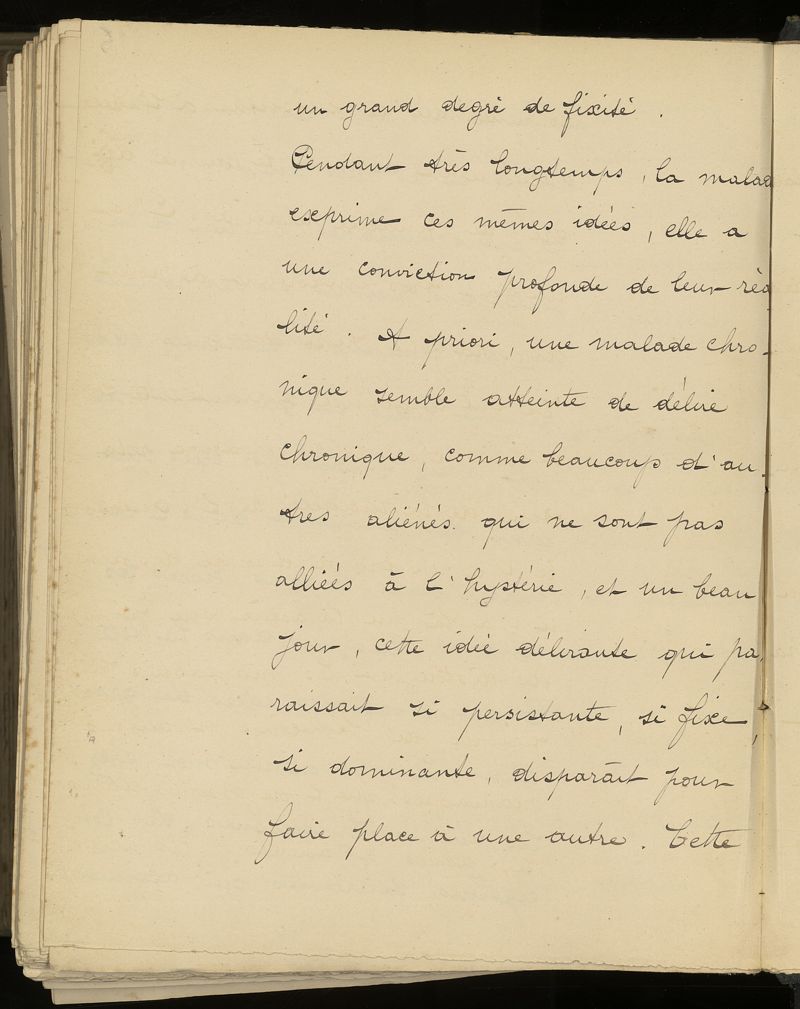 un grand degré de fixité.
Pendant très longtemps, la malad
exprime ces mêmes idées, elle a
une conviction profonde de leur réa
lité. A priori, une malade chro-
nique semble atteinte de délire
chronique, comme beaucoup d'au-
tres aliénés qui ne sont pas
alliées à l'hystérie, et un beau
jour, cette idée délirante qui pa-
raissait si persistante, si fixe,
si dominante, disparaît pour
faire place à une autre. Cette